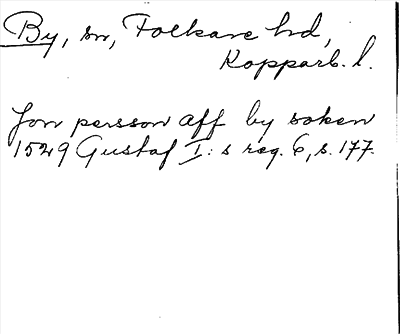 By, sn, Folkare hd,
Kopparb. l.
Jon persson aff by soken
1529 Gustaf I: s reg. 6, s. 177.